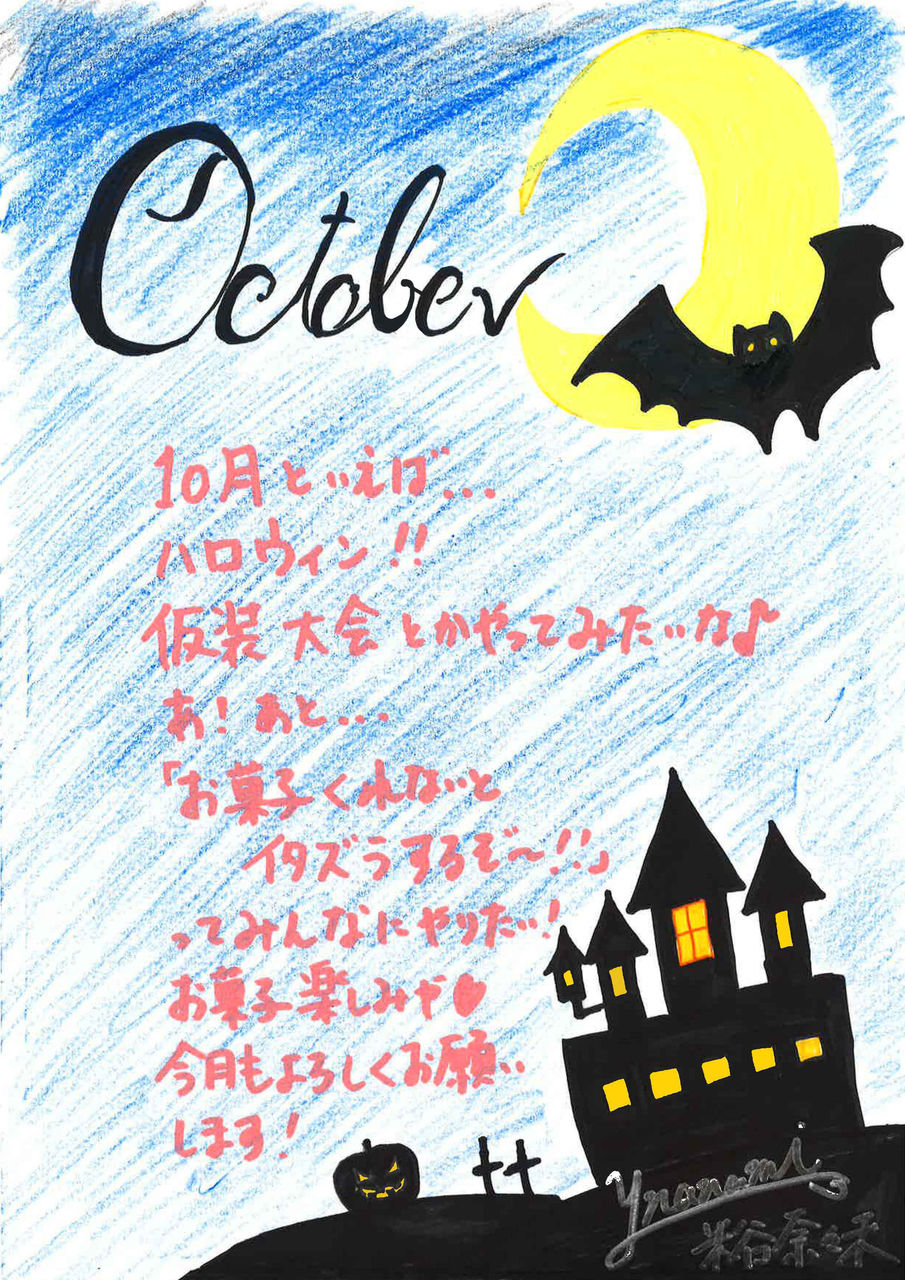 October
10月といえば...
ハロウィン!!
仮装大会とかやってみたいな♪
あ!あと...
「お菓子くれないと
イタズラするぞ〜!!」
ってみんなにやりたい!
お菓子楽しみや♥
今月もよろしくお願い
します!
米谷奈々未